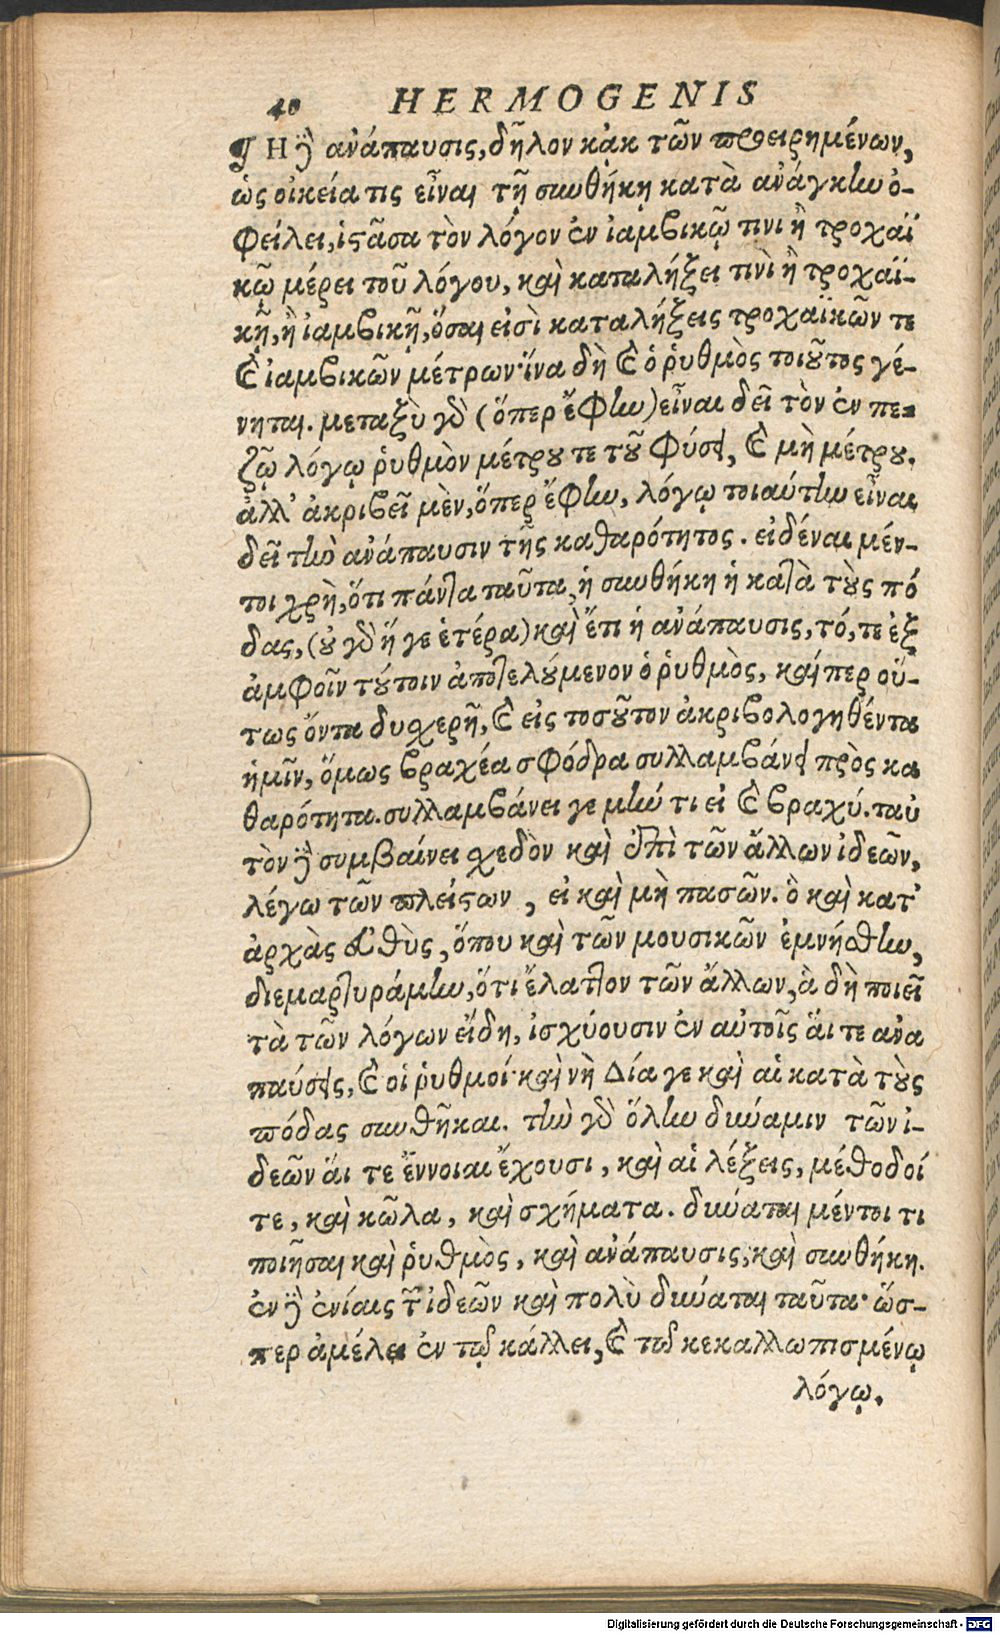 40 HERMOGENIS
¶ Η δὲ ἀνάπαυσις, δῆλον κἀκ τῶν προειρημένων,
ὡς οἰκεία τις εἶναι τῇ συνθήκῃ κατὰ ἀνάγκην ὀ-
φείλει, ἱστᾶσα τὸν λόγον ἐν ἰαμβικῷ τινι ἢ τροχαϊ
κῷ μέρει τοῦ λόγου, καὶ καταλήξει τινὶ ἢ τροχαϊ-
κῇ, ἢ ἰαμβικῇ, ὅσαι εἰσὶ καταλήξεις τροχαϊκῶν τε
καὶ ἰαμβικῶν μέτρων· ἵνα δὴ καὶ ὁ ῥυθμὸς τοιοῦτος γέ-
νηται. μεταξὺ γὰρ (ὅπερ ἔφην) εἶναι δεῖ τὸν ἐν πε-
ζῷ λόγῳ ῥυθμὸν μέτρου τε τοῦ φύσει, καὶ μὴ μέτρου.
ἀλλ' ἀκριβεῖ μὲν, ὅπερ ἔφην, λόγῳ τοιαύτην εἶναι
δεῖ τὴν ἀνάπαυσιν τῆς καθαρότητος. εἰδέναι μέν-
τοι χρὴ, ὅτι πάντα ταῦτα, ἡ συνθήκη ἡ κατὰ τοὺς πό
δας, (οὐ γὰρ ἥ γε ἑτέρα) καὶ ἔτι ἡ ἀνάπαυσις, τό, τε ἐξ
ἀμφοῖν τούτοιν ἀποτελούμενον ὁ ῥυθμὸς, καίπερ οὕ-
τως ὄντα δυσχερῆ, καὶ εἰς τοσοῦτον ἀκριβολογηθέντα
ἡμῖν, ὅμως βραχέα σφόδρα συλλαμβάνει πρὸς κα
θαρότητα. συλλαμβάνει γε μήν τι εἰ καὶ βραχύ. ταὐ
τὸν δὲ συμβαίνει σχεδὸν καὶ ἐπὶ τῶν ἄλλων ἰδεῶν,
λέγω τῶν πλείστων, εἰ καὶ μὴ πασῶν. ὃ καὶ κατ'
ἀρχὰς εὐθὺς, ὅπου καὶ τῶν μουσικῶν ἐμνήσθην,
διεμαρτυράμην, ὅτι ἔλαττον τῶν ἄλλων, ἃ δὴ ποιεῖ
τὰ τῶν λόγων εἴδη, ἰσχύουσιν ἐν αὐτοῖς ἅι τε ἀνα
παύσεις, καὶ οἱ ῥυθμοί· καὶ νὴ Δία γε καὶ αἱ κατὰ τοὺς
πόδας συνθῆκαι. τὴν γὰρ ὅλην δύναμιν τῶν ἰ-
δεῶν ἅι τε ἔννοιαι ἔχουσι, καὶ αἱ λέξεις, μέθοδοί
τε, καὶ κῶλα, καὶ σχήματα. δύναται μέντοι τι
ποιῆσαι καὶ ῥυθμὸς, καὶ ἀνάπαυσις, καὶ συνθήκη.
ἐν δὲ ἐνίαις τῶν ἰδεῶν καὶ πολὺ δύναται ταῦτα· ὥσ-
περ ἀμέλει ἐν τῷ κάλλει, καὶ τῷ κεκαλλωπισμένῳ
λόγῳ.
Digitalisierung gefördert durch die Deutsche Forschungsgemeinschaft - DFG